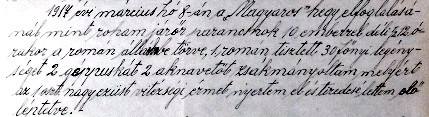 1917 évi március hó 8-án a "Magyaros" hegy elfoglalásá-
nál mint roham járőr parancsnok 10 emberrel déli 1/2 12 ó-
rakor a román állásba törve, 1 román tisztet 30 főnyi legény-
séget 2 géppuskát 2 aknavetőt zsákmányoltam melyért
az I oszt. nagyezüst vitézségi érmet nyertem el és tizedesé lettem elő
léptetve.